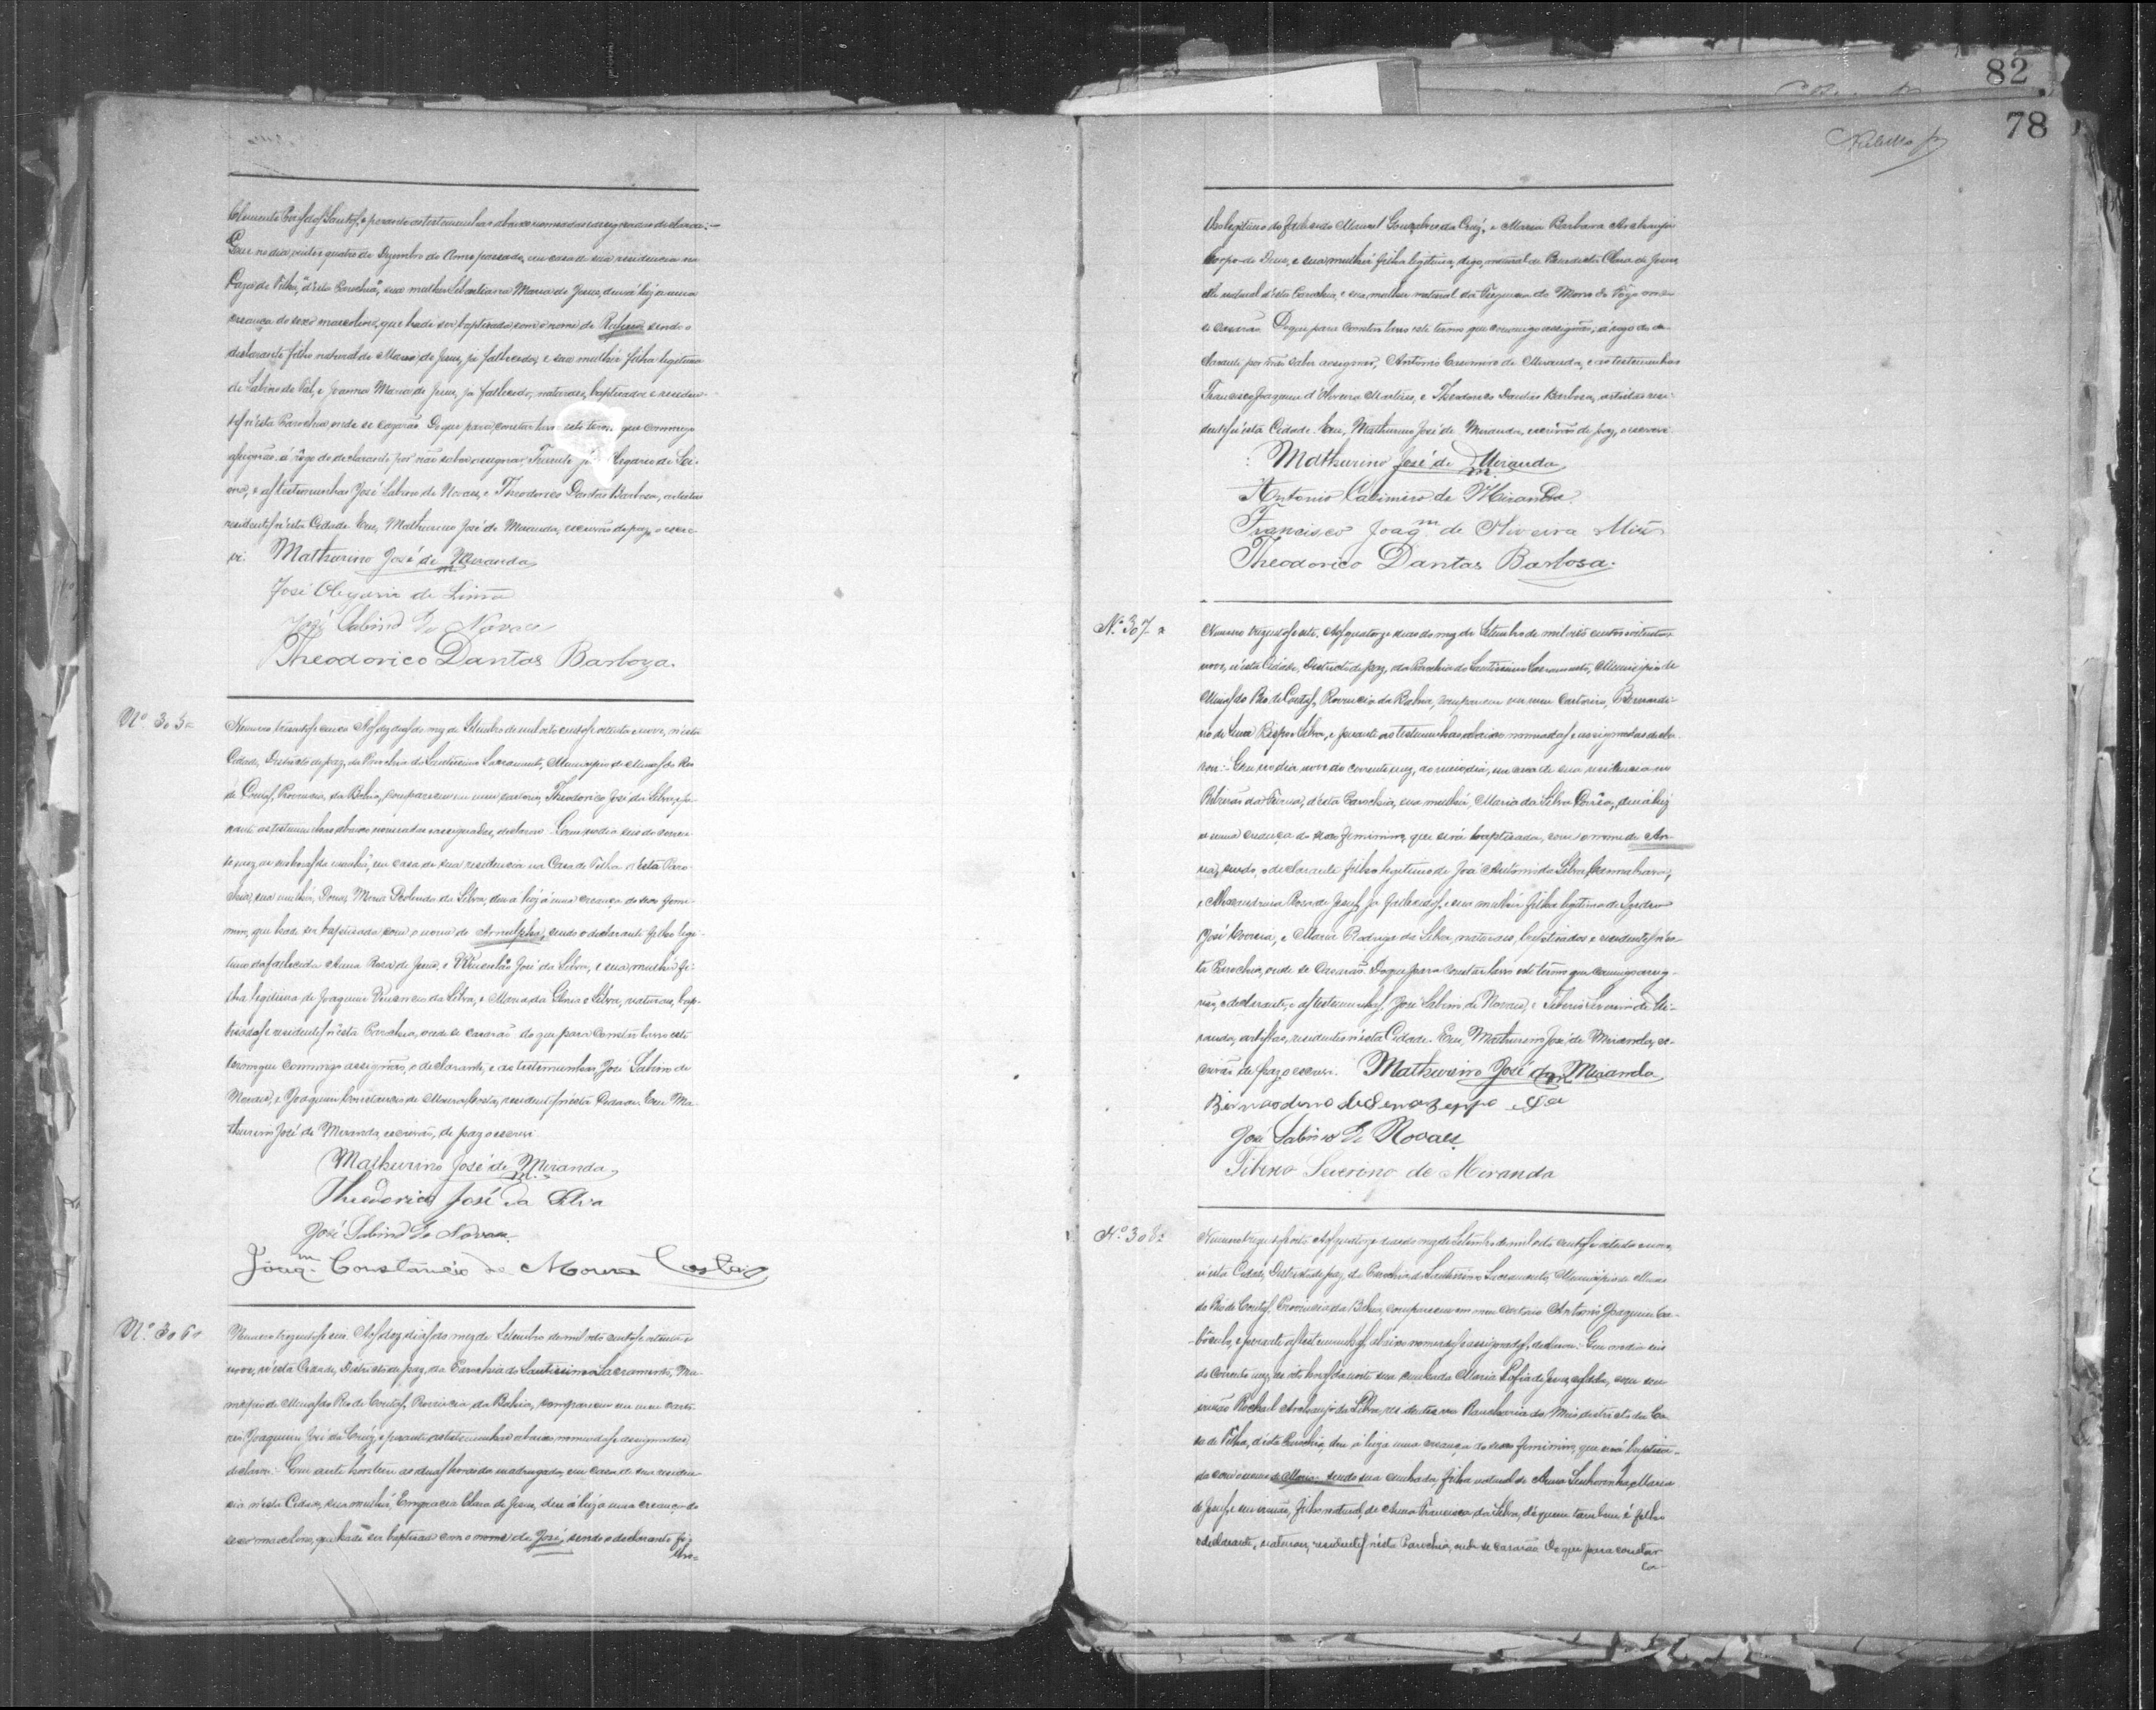 82
78
Clemente José dos Santos, e perante as testemunhas abaixo nomeadas e assignadas declarou:
Que no dia vinte e quatro de Dezembro do Anno passado, em casa de sua residencia na
Casa de Telha, d'esta Parochia, sua mulher Sebastiana Maria de Jesus, deu á luz a uma
creança do sexo masculino, que hade ser baptisado com o nome de sendo o
declarante filho natural de Maria de Jesus, já fallecida, e sua mulher filha legitima
de Sabino de Tal, e Joanna Maria de Jesus, já fallecido, naturaes, baptisados e residen-
tes n'esta Parochia, onde se casarão. Do que para constar lavro este termo que commigo
assignão á rogo do declarante por não saber assignar, Olegario de Li-
ma, e as testemunhas José Sabino de Novaes, e Theodorico Dantas Barbosa, artistas
residentes n'esta Cidade. Eu, Mathurino José de Miranda, escrivão de paz, o escre-
vi. Mathurino José de Miranda
José Olegario de Lima
José Sabino de Novaes
Theodorico Dantas Barboza.
Nº 305=
Numero trezentos e cinco. Aos dez dias do mez de Setembro de mil oito centos e oitenta e nove, n'esta
Cidade, Districto de paz, da Parochia do Santissimo Sacramento, Municipio de Minas do Rio
de Contas, Provincia da Bahia, compareceu em meu cartorio, Theodorico José da Silva, e pe-
rante as testemunhas abaixo nomeadas e assignadas, declarou: Que no dia seis do corren-
te mez, as horas da manhã, em casa de sua residencia na Casa de Telha n'esta Paro-
chia, sua mulher, Dona Maria da Silva, deu á luz á uma creança do sexo femi-
nino, que hade ser baptisada com o nome de Arnulpha, sendo o declarante filho legi-
timo da fallecida Anna Rosa de Jesus, e José da Silva, e sua mulher fi-
lha legitima de Joaquim Venancio da Silva, e Maria da Gloria e Silva, naturaes, bap-
tisados e residentes n'esta Parochia, onde se casarão do que para constar lavro este
termo que commigo assignão, o declarante, e as testemunhas, José Sabino de
Novaes, e Joaquim Constancio de Moura Costa, residentes n'esta Cidade. Eu Ma-
thurino José de Miranda, escrivão, de paz o escrevi.
Mathurino José de Miranda
Theodorico José da Silva
José Sabino de Novaes
Joaqm Constancio de Moura Costa
Nº 306=
Numero trezentos e seis. Aos dez dias do mez de Setembro de mil oito centos e oitenta e
nove, n'esta Cidade, Districto de paz, da Parochia do Santissimo Sacramento, Mu-
nicipio de Minas do Rio de Contas, Provincia da Bahia, compareceu em meu carto-
rio Joaquim José da Cruz, e perante as testemunhas abaixo, nomeadas e assignadas
declarou: Que ante hontem as duas horas da madrugada, em casa de sua residen-
cia n'esta Cidade, sua mulher, Clara de Jesus, deu á luz a uma creança do
sexo masculino, que hade ser baptisado com o nome de José, sendo o declarante fi-
lho=
lho legitimo do fallecido Manoel Gonçalves da Cruz, e Maria Barbara
Corpo de Deus, e sua mulher filha legitima, digo, natural de Benedicta Clara de Jesus,
elle natural d'esta Parochia, e sua mulher natural da Freguesia do Morro do Fogo onde
se casarão. Do que para constar lavro este termo que commigo assignão, á rogo do de-
clarante por não saber assignar, Antonio Casimiro de Miranda, e as testemunhas
Francisco Joaquim d'Oliveira Martins, e Theodorico Dantas Barbosa, artistas resi-
dentes n'esta Cidade. Eu, Mathurino José de Miranda, escrivão de paz, o escrevi.
Mathurino José de Miranda
Antonio Casimiro de Miranda
Francisco Joaqm de Oliveira
Theodorico Dantas Barbosa.
Nº 307=
Numero trezentos e sete. Aos quatorze dias do mez de Setembro de mil oito centos e oitenta e
nove, n'esta Cidade, Districto de paz, da Parochia do Santissimo Sacramento, Municipio de
Minas do Rio de Contas, Provincia da Bahia, compareceu em meu Cartorio, Bernardi-
no de Sena Silva, e perante as testemunhas abaixo nomeadas e assignadas decla-
rou:- Que no dia nove do corrente mez, ao meio dia, em casa de sua residencia no
da Furna, d'esta Parochia, sua mulher, Maria da Silva deu á luz
a uma creança do sexo feminino, que será baptisada, com o nome de An-
na, sendo, o declarante filho legitimo de José Antonio da Silva
e Alexandrina Rosa de Jesus, já fallecidos, e sua mulher filha legitima de
José Correia, e Maria Rodrigues da Silva, naturaes, baptisados e residentes n'es-
ta Parochia, onde se casarão. Do que para constar lavro este termo que commigo assig-
não, o declarante, e as testemunhas, José Sabino de Novaes, e Tiberio Severino de Mi-
randa, artistas, residentes n'esta Cidade. Eu, Mathurino José de Miranda, es-
crivão de paz, o escrevi. Mathurino José de Miranda
Bernardino de Sena
José Sabino de Novaes
Tiberio Severino de Miranda
Nº 308=
Numero trezentos e oito. Aos quatorze dias do mez de Setembro de mil oito centos e oitenta e nove,
n'esta Cidade, Districto de paz, da Parochia do Santissimo Sacramento, Municipio de Minas
do Rio de Contas, Provincia da Bahia, compareceu em meu Cartorio Antonio Joaquim
e perante as testemunhas abaixo nomeadas e assignadas, declarou: Que no dia seis
do corrente mez, as oito horas da noite sua cunhada Maria de Jesus, casada, com seu
irmão Archanjo da Silva, residentes na Rancharia do Meio districto da Ca-
sa de Telha, d'esta Parochia, deu á luz a uma creança do sexo feminino, que será baptisa-
da com o nome de Maria, sendo sua cunhada, filha natural de Anna Senhorinha Maria
de Jesus, e seu irmão, filho natural, de Anna Francisca da Silva, de quem tambem é filho
o declarante, naturaes, residentes n'esta Parochia, onde se casarão. Do que para constar
la-